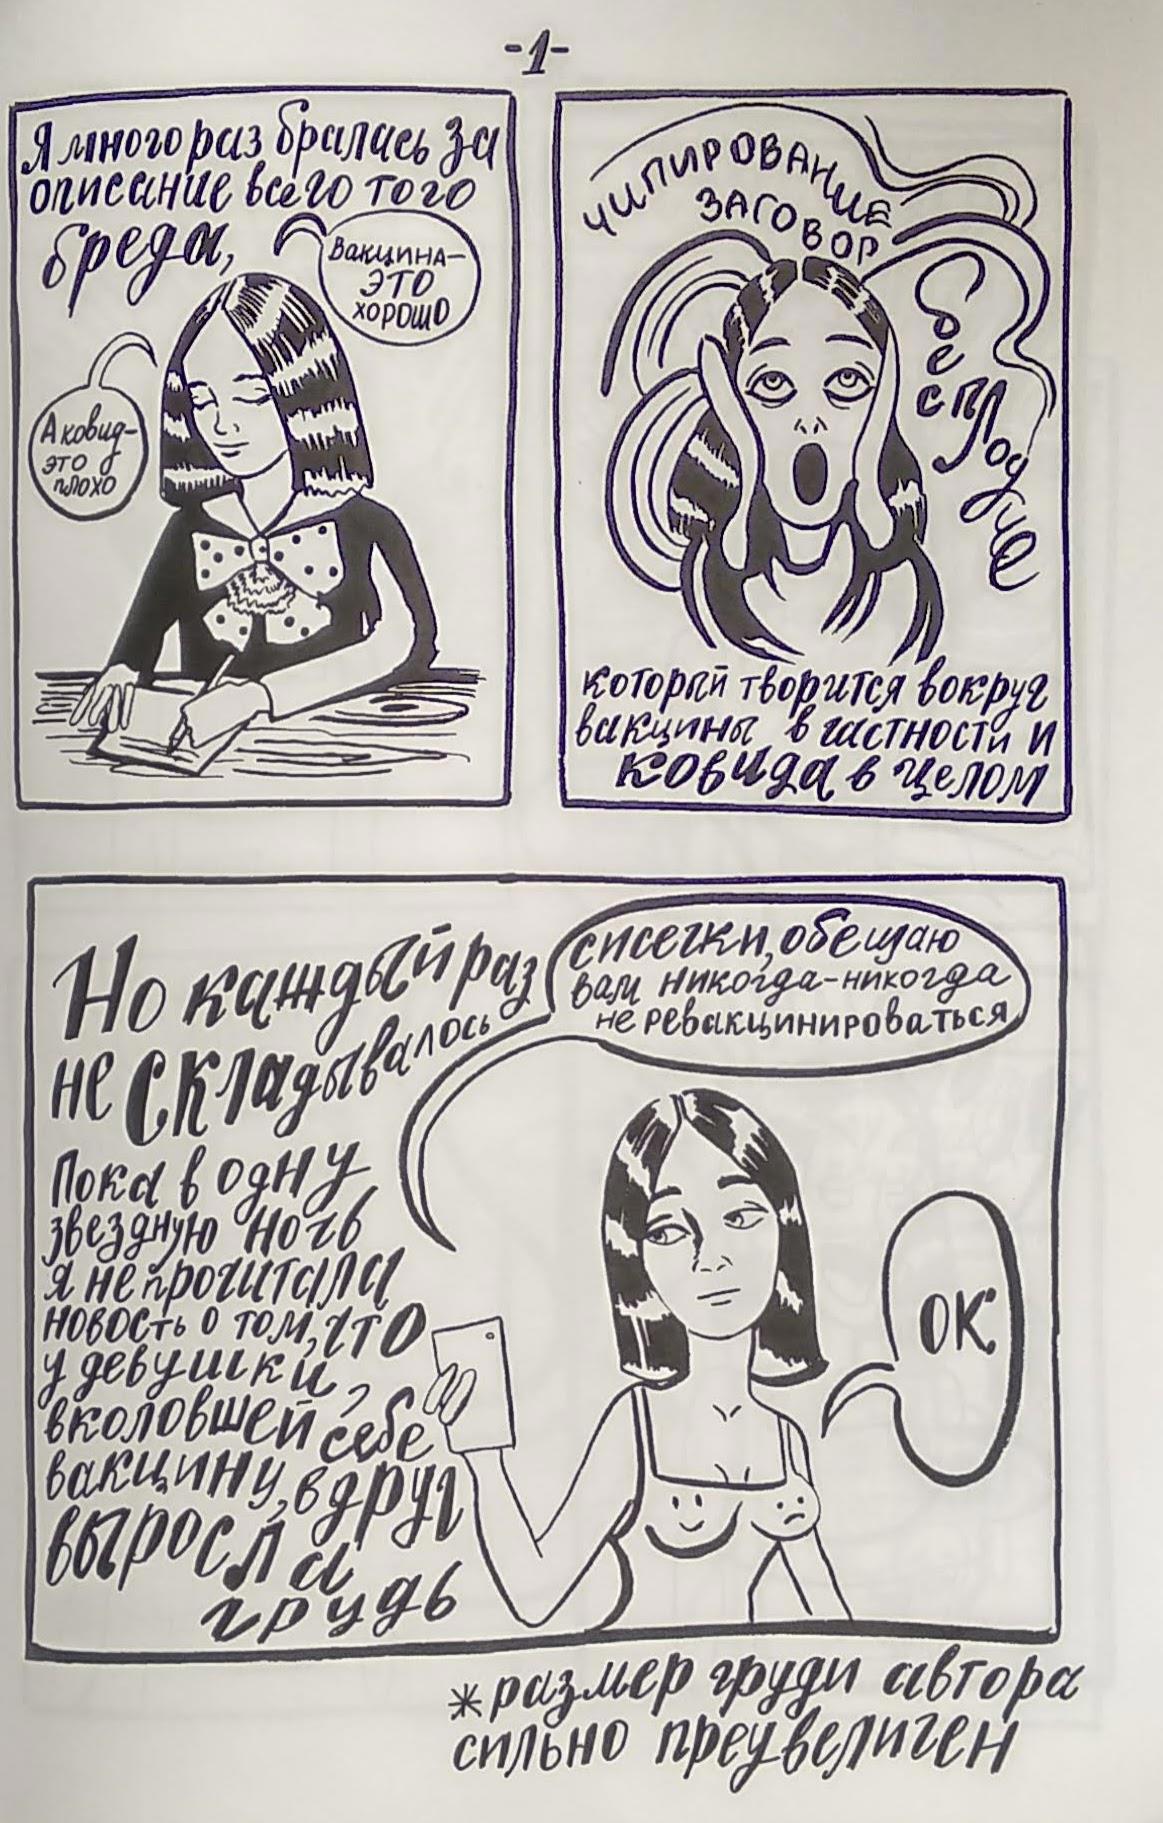 -1-
Я много раз бралась за
описание всего того
бреда,
Вакцина-
это
хорошо
А ковид-
это
плохо
ЧИПИРОВАНИЕ
ЗАГОВОР
бесплодие
который творится вокруг
вакцины в частности и
ковида в целом
Но каждый раз
не складывалось
сисечки, обещаю
вам никогда-никогда
не ревакцинироваться
Пока в одну
звездную ночь
я не прочитала
новость о том, что
у девушки,
вколовшей себе
вакцину, вдруг
выросла
грудь
ОК
*размер груди автора
сильно преувеличен